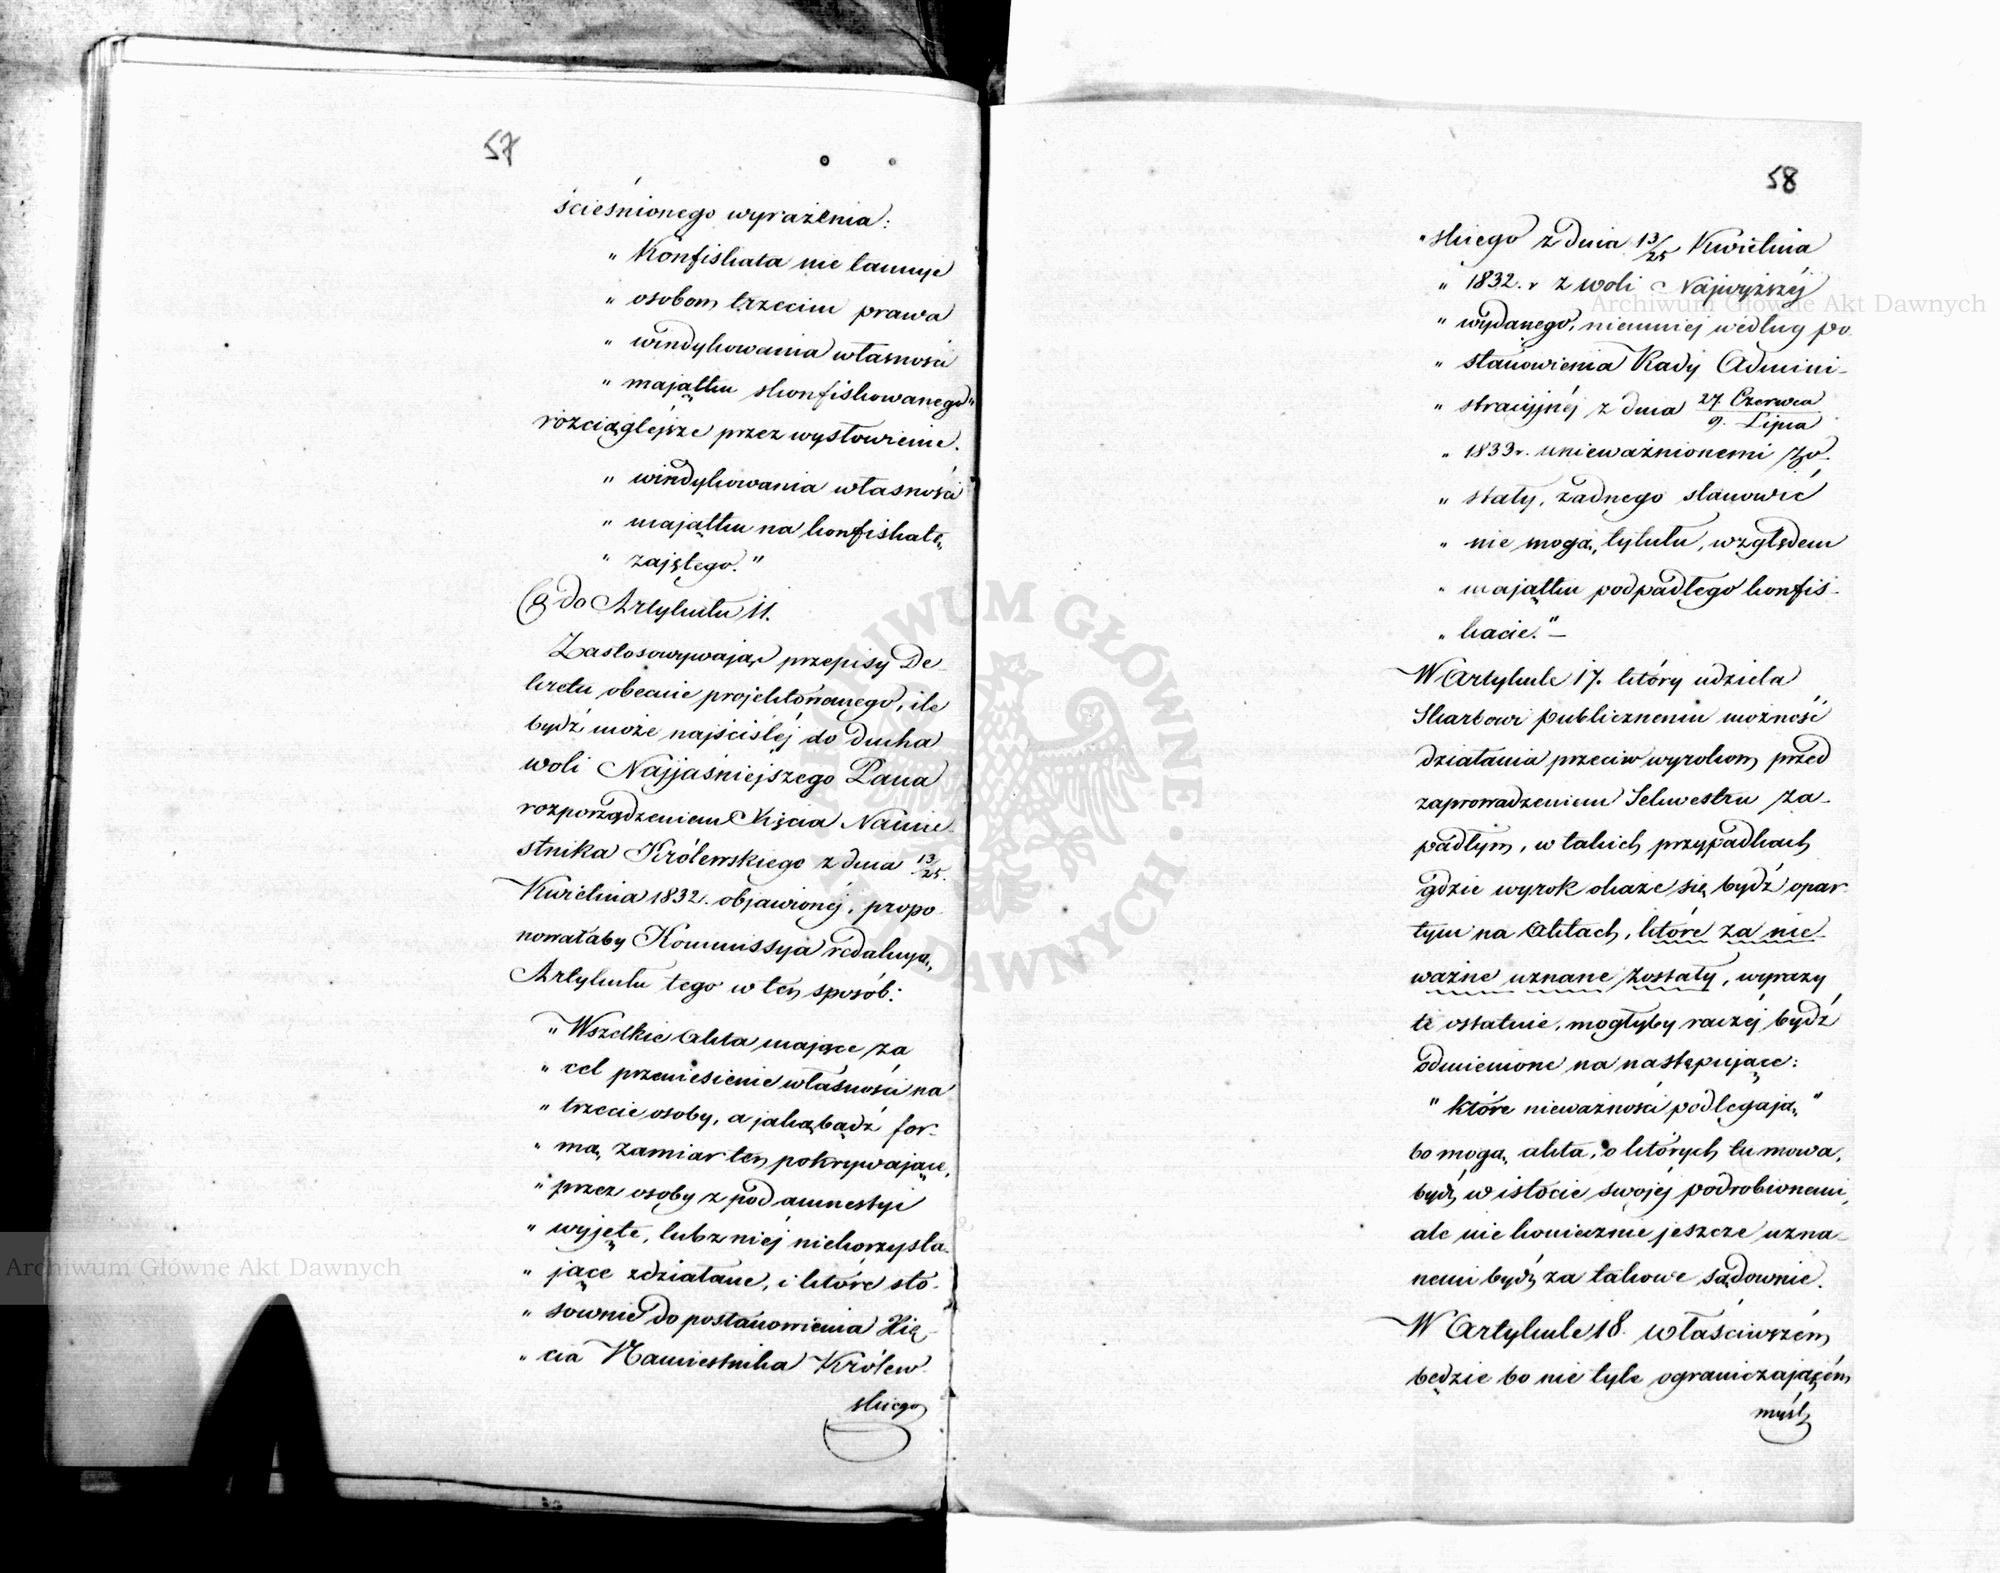 57
ścieśnionego wyrażenia:
" Konfiskata nie tamuje
" osobom trzecim prawa
" windykowania własności
" majątku skonfiskowanego"
rozciąglejsze przez wysłowienie.
" windykowania własności
" majątku na konfiskatę
" zajętego."
Co do Artykułu 11.
Zastosowywając przepisy De
kretu obecnie projektowanego, ile
bydź może najściślej do ducha
woli Najjaśniejszego Pana
rozporządzeniem Xięcia Namie-
stnika Królewskiego z dnia 13/25.
Kwietnia 1832. objawionej, propo
nowałaby Kommissya redakcyą
Artykułu tego w ten sposób:
" Wszelkie Akta mające za
" cel przeniesienie własności na
" trzecie osoby, a jakąbądź for-
" mą zamiar ten pokrywające,
" przez osoby z pod amnestyi
" wyjęte, lub z niej niekorzysta-
" jące zdziałane, i które sto-
" sownie do postanowienia Xię-
" cia Namiestnika Królew
skiego
58
" skiego z dnia 13/25 Kwietnia
" 1832. r z woli Najwyższéj
" wydanego, niemniej według po-
" stanowienia Rady Admini-
" stracyjnéj z dnia 27. Czerwca / 9. Lipca
" 1833 r. unieważnionemi zo-
" stały, żadnego stanowić
" nie mogą, tytułu, względem
" majątku podpadłego konfis-
" kacie." —
W Artykule 17. który udziela
Skarbowi publicznemu możność
działania przeciw wyrokom przed
zaprowadzeniem Sekwestru za-
padłym, w takich przypadkach
gdzie wyrok okaże się bydź opar-
tym na Aktach, które za nie-
ważne uznane zostały, wyrazy
te ostatnie, mogłyby raczéj bydź
odmienione na następujące:
" które nieważności podlegają,"
bo mogą akta, o których tu mowa,
bydź w istocie swojéj podrobionemi,
ale nie koniecznie jeszcze uzna-
nemi bydź za takowe sądownie.
W Artykule 18. właściwszém
będzie bo nie tyle ograniczającém
myśl
Archiwum Główne Akt Dawnych
Archiwum Główne Akt Dawnych
ARCHIWUM GŁÓWNE AKT DAWNYCH